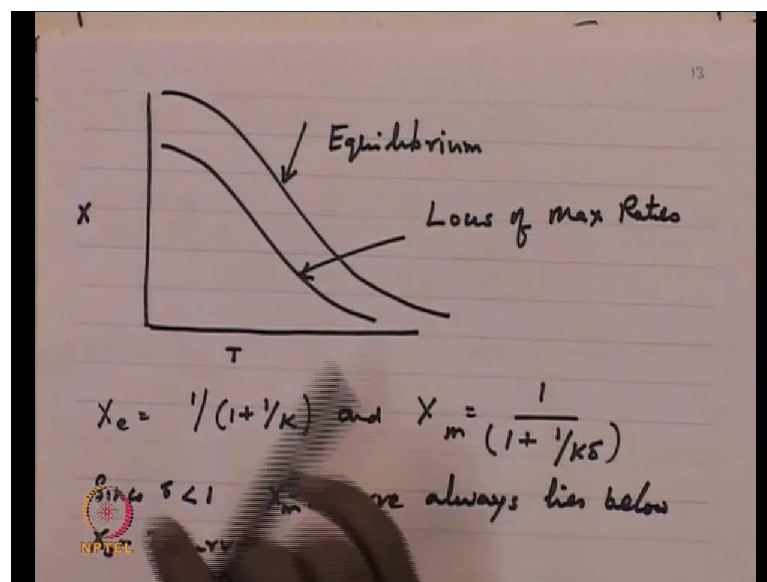 13
Equilibrium
X
Locus of Max Rates
T
Xe = 1/(1+1/K) and Xm = 1/(1+1/Kδ)
Since δ < 1 Xm always lies below
NPTEL